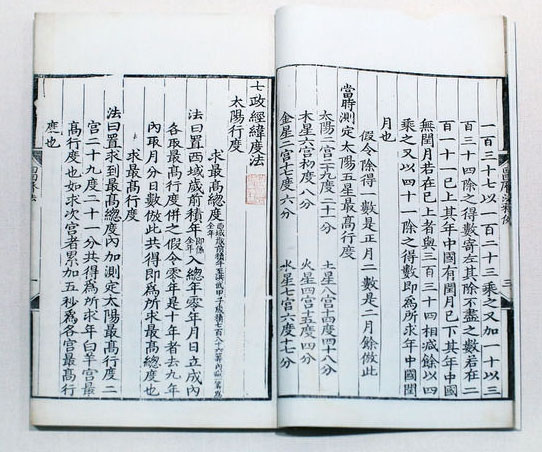 一百三十七以一百二十三乘之又加一十以三
百三十四除之得數寄左其除不盡之數若在二
百一十一已上其年中國有閏月已下其年中國
無閏月若在已上者與三百三十四相減餘以四
乘之又以四十一除之得數即為所求年中國閏
月也
假令除得一數是正月二數是二月餘倣此
當時測定太陽五星最高行度
太陽二宮二九度二十一分 土星八宮十四度四十八分
木星六宮初度八分 火星四宮十五度四分
金星二宮十七度六分 水星七宮六度十七分
七政經緯度法
太陽行度
求最高總度
法曰置西域歲前積年入總年零年月日立成內
各取最高行度併之假令零年是十年者去九年
內取月分日數倣此共得即為所求最高總度也
求最高行度
法曰置求到最高總度內加測定太陽最高行度二
宮二十九度二十一分共得為所求年白羊宮最
高行度也如求次宮者累加五秒為各宮最高行
度也